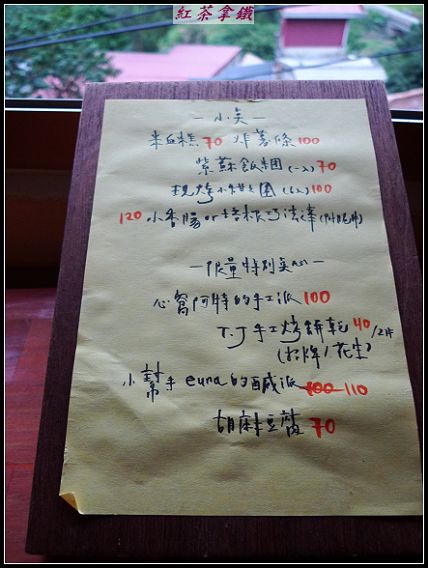 紅茶拿鐵
－小点－
米血糕 70 炸薯條 100
紫蘇飯糰(一入) 70
現烤小 圈(6入) 100
120 小香腸or培根巧達
－限量特別点心－
心窩阿特的手工派 100
T.J 手工烤餅乾 40/2片
(招牌/花生)
小幫手euna的鹹派 100 110
胡麻豆腐 70